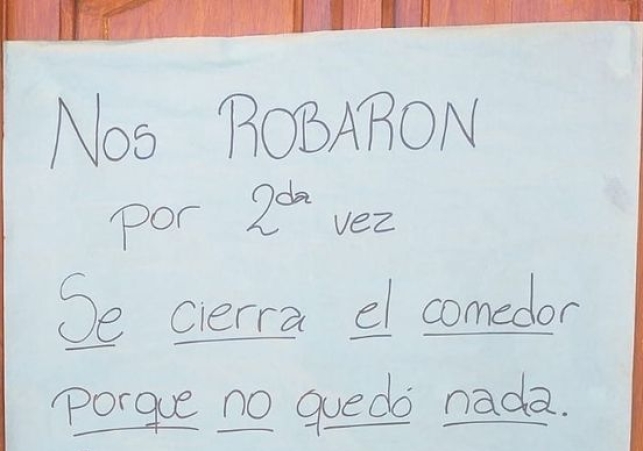 Nos ROBARON
por 2da vez
Se cierra el comedor
porque no quedó nada.